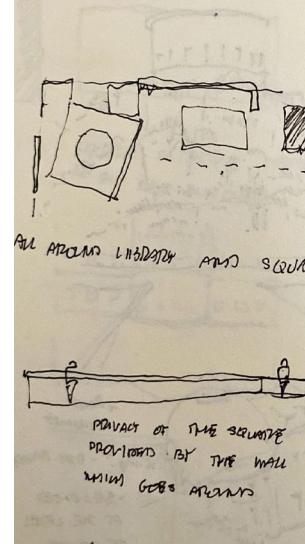 ALL AROUND LIBRARY AND SQUA
PRIVACY OF THE SQUARE
PROVIDED BY THE WALL
WHICH GOES AROUND